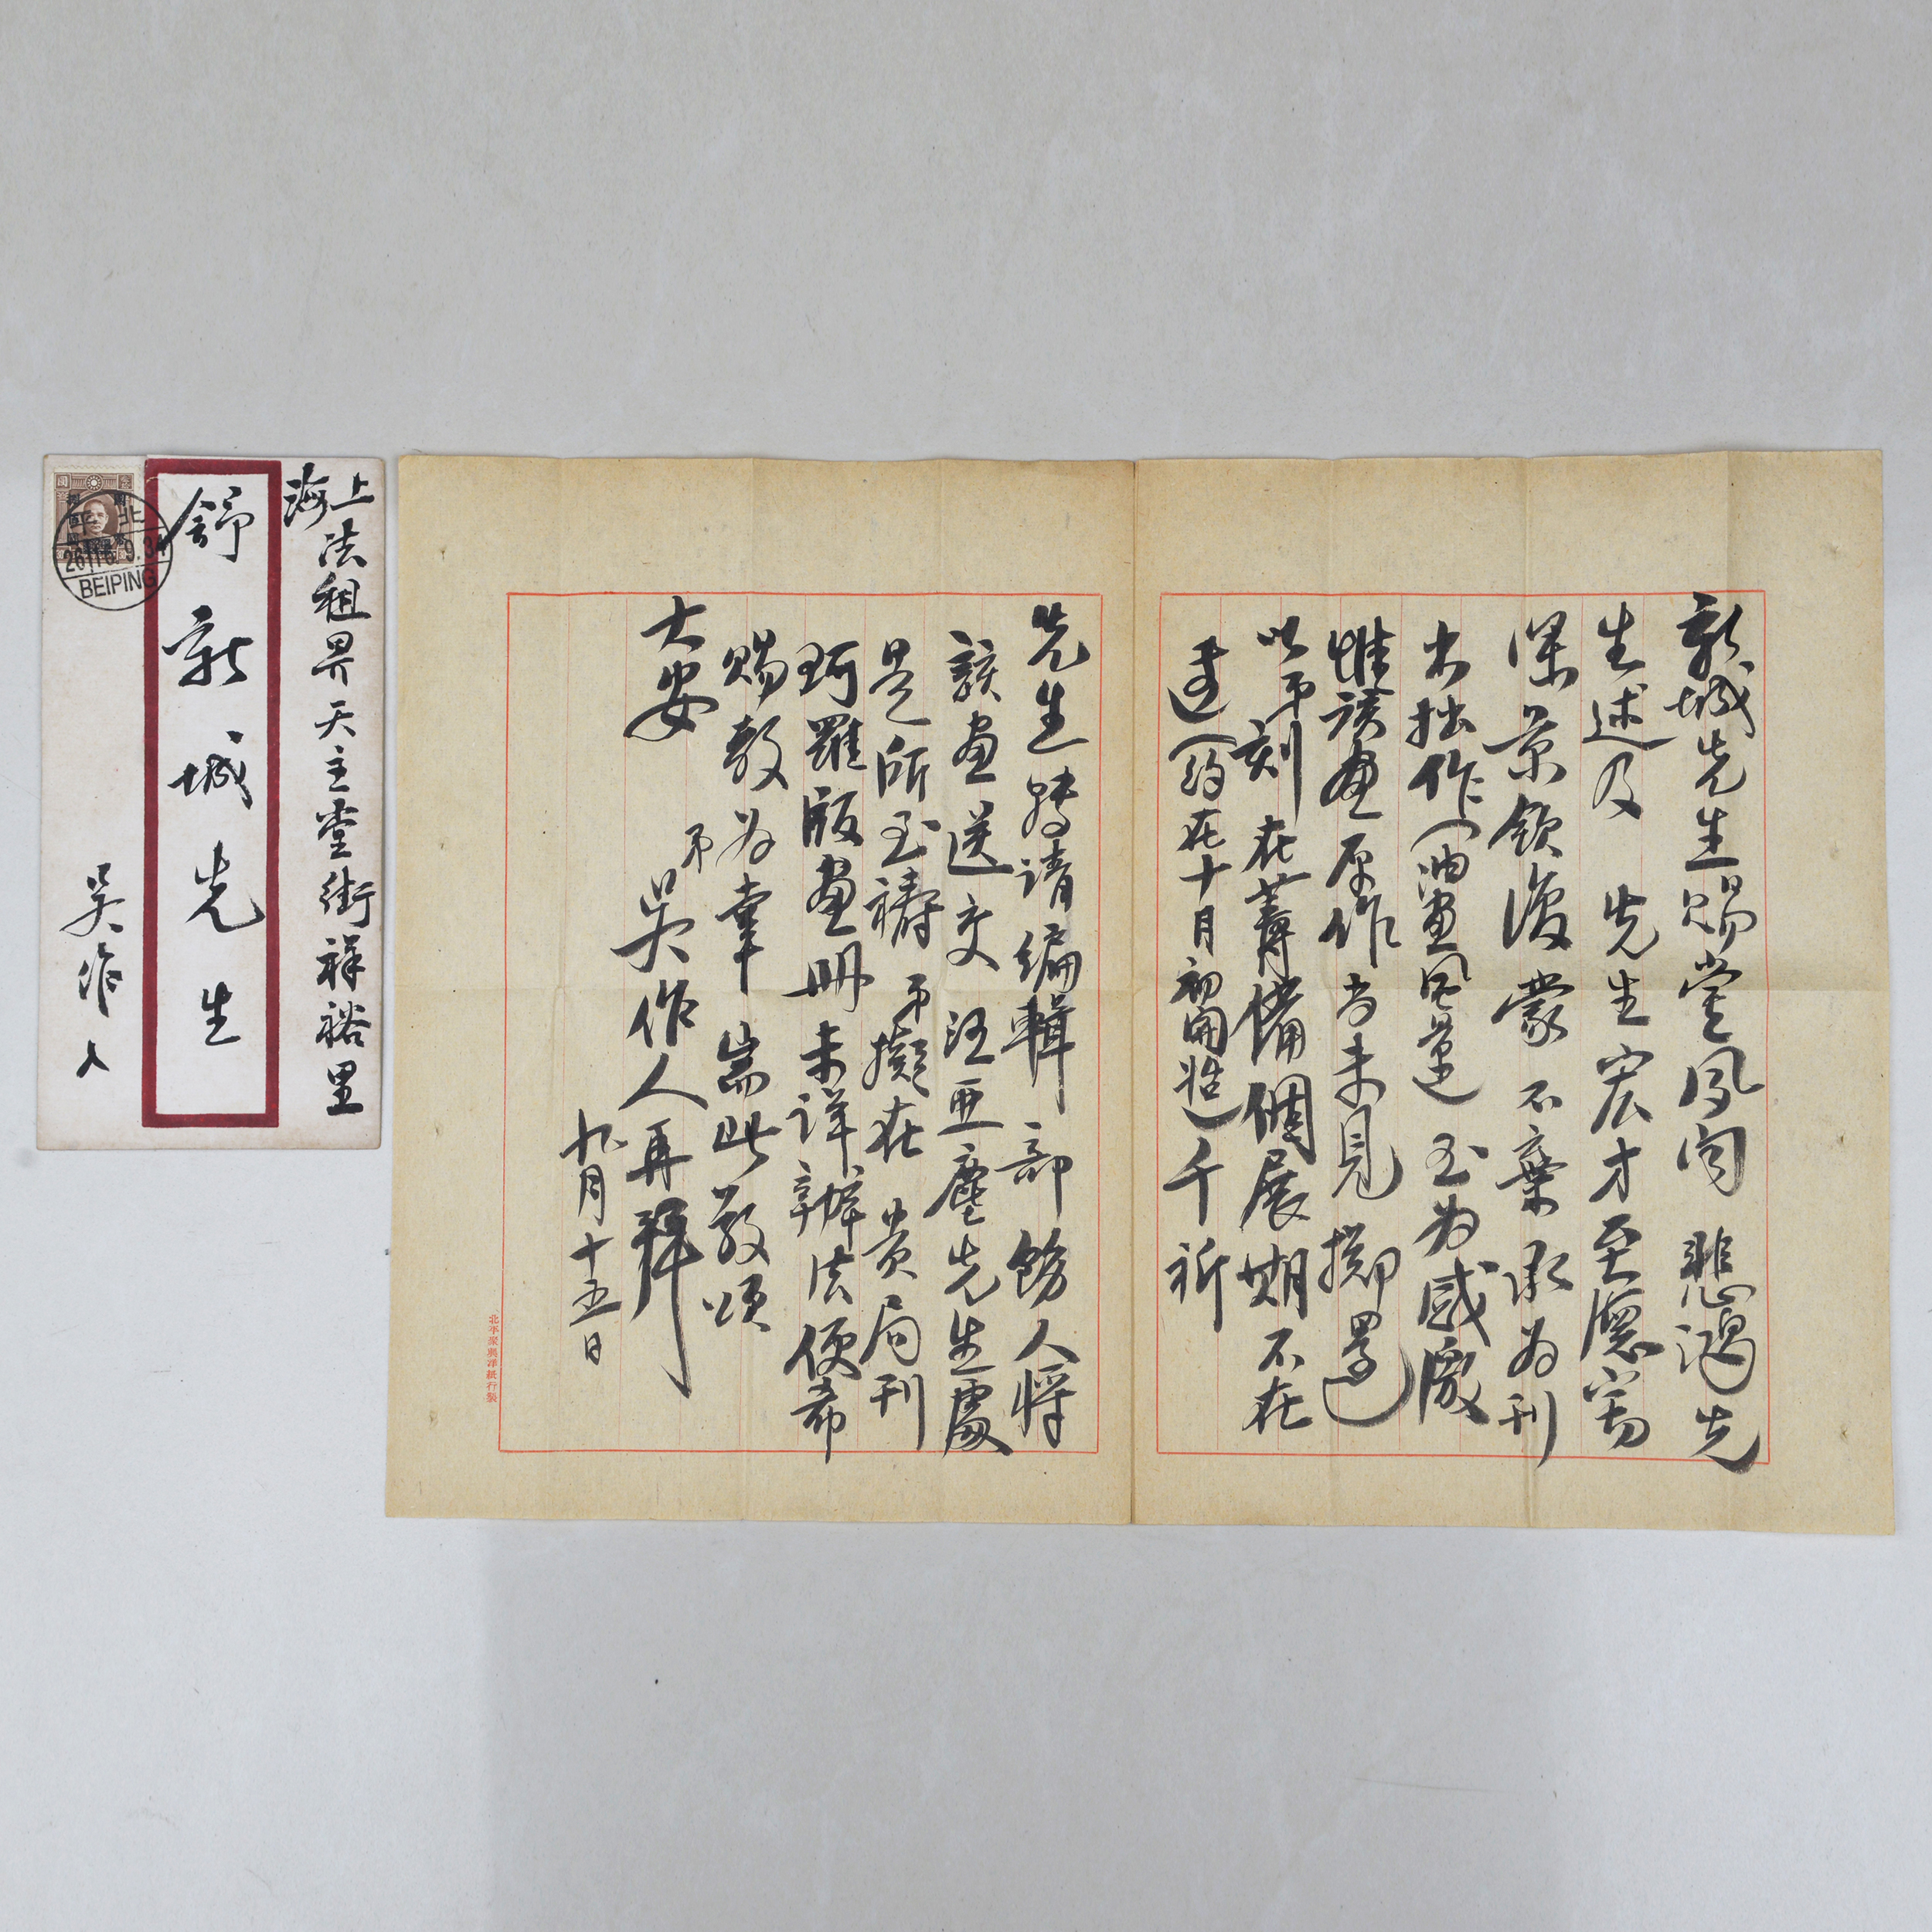 新城先生賜鑒夙聞 悲鴻先
生述及 先生宏才至德竊
深景欽復蒙不棄承为刊
出拙作（油畫風景）至为感激
惟該畫原作尚未見擲還
以弟刻在籌備個展期不在
遠（約在十月初開始）千祈
先生轉請編輯部飭人將
該畫送交 汪亞塵先生處
是所至禱 弟擬在 貴局刊
珂羅版畫册未詳辦法便希
賜教为幸 耑此敬頌
大安
弟 吳作人再拜
九月十五日
北平
上海法租界天主堂街祥裕里
舒新城先生
吳作人
北平
BEIPING